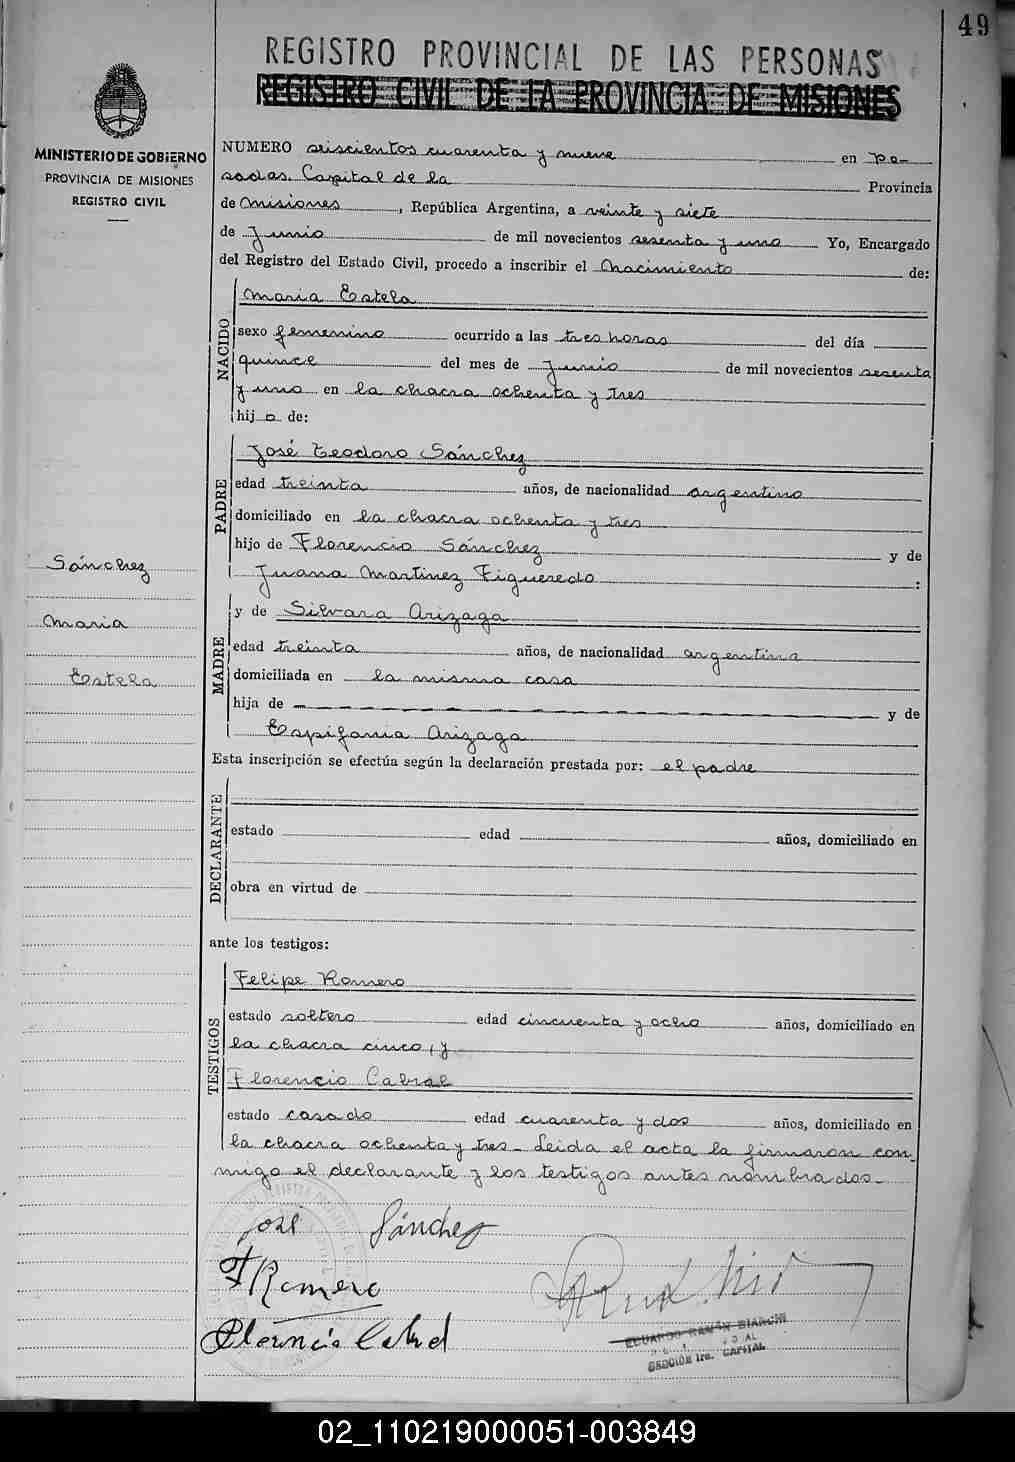 49
REGISTRO PROVINCIAL DE LAS PERSONAS
REGISTRO CIVIL DE LA PROVINCIA DE MISIONES
MINISTERIO DE GOBIERNO
PROVINCIA DE MISIONES
REGISTRO CIVIL
NUMERO seiscientos cuarenta y nueve en Po-
sadas. Capital de la Provincia
de Misiones, República Argentina, a veinte y siete
de Junio de mil novecientos sesenta y uno Yo, Encargado
del Registro del Estado Civil, procedo a inscribir el Nacimiento de:
NACIDO
Maria Estela
sexo femenino ocurrido a las tres horas del día
quince del mes de Junio de mil novecientos sesenta
y uno en la chacra ochenta y tres
hij a de:
PADRE
José Teodoro Sánchez
edad treinta años, de nacionalidad argentino
domiciliado en la chacra ochenta y tres
hijo de Florencio Sánchez y de
Juana Martinez Figueredo :
MADRE
y de Silvara Arizaga
edad treinta años, de nacionalidad argentina
domiciliada en la misma casa
hija de — — — — — — — — y de
Espifania Arizaga
Sánchez
Maria
Estela
Esta inscripción se efectúa según la declaración prestada por: el padre
DECLARANTE
estado edad años, domiciliado en
obra en virtud de
ante los testigos:
TESTIGOS
Felipe Romero
estado soltero edad cincuenta y ocho años, domiciliado en
la chacra cinco, y
Florencio Cabral
estado casado edad cuarenta y dos años, domiciliado en
la chacra ochenta y tres. Leida el acta la firmaron con-
migo el declarante y los testigos antes nombrados.-
José Sánchez
F Romero
Florencio Cabral
EDUARDO RAMÓN BIANCHI
SECCIÓN 1ra. CAPITAL
02_110219000051-003849